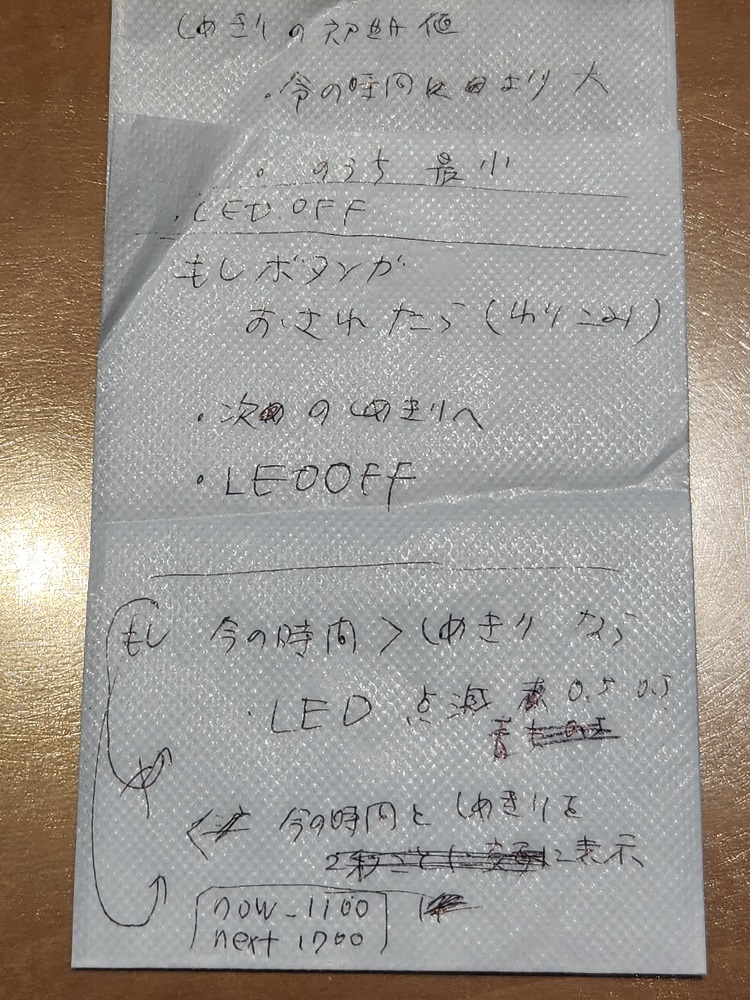 しめきりの初期値
・今の時間より大
・のうち 最小
・LED OFF
もしボタンが
おされたら(わりこみ)
・次のしめきりへ
・LED OFF
もし 今の時間 > しめきり なら
・LED 点滅 0.5 0.5
今の時間としめきりを
に表示
now_1100
next 1700